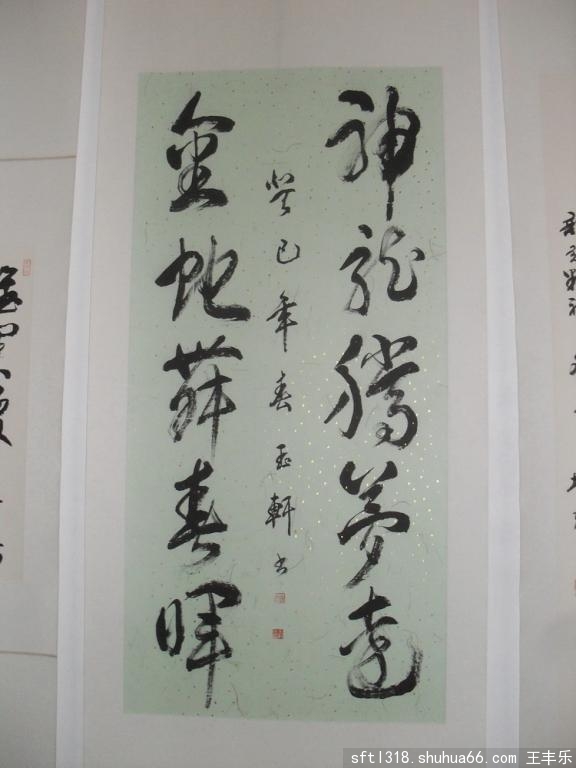 神龍騰夢遠
癸巳年春玉軒书
金蛇舞春暉
sftl318.shuhua66.com 王丰乐